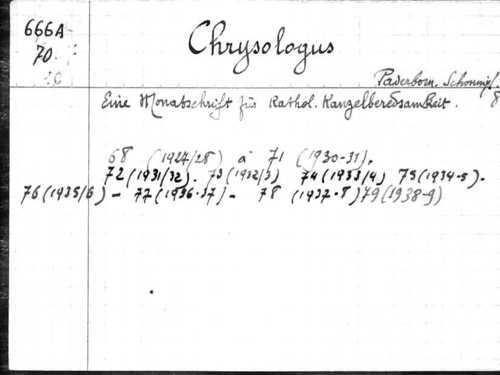 666A
70.
Chrysologus
Paderborn. Schöningh.
8
Eine Monatschrift für Kathol. Kanzelberedsamkeit.
68 (1927/28) à 71 (1930-31).
72 (1931/32). 73 (1932/3) 74 (1933/4) 75 (1934-5).
76 (1935/6) - 77 (1936-37) - 78 (1937-8) 79 (1938-9)